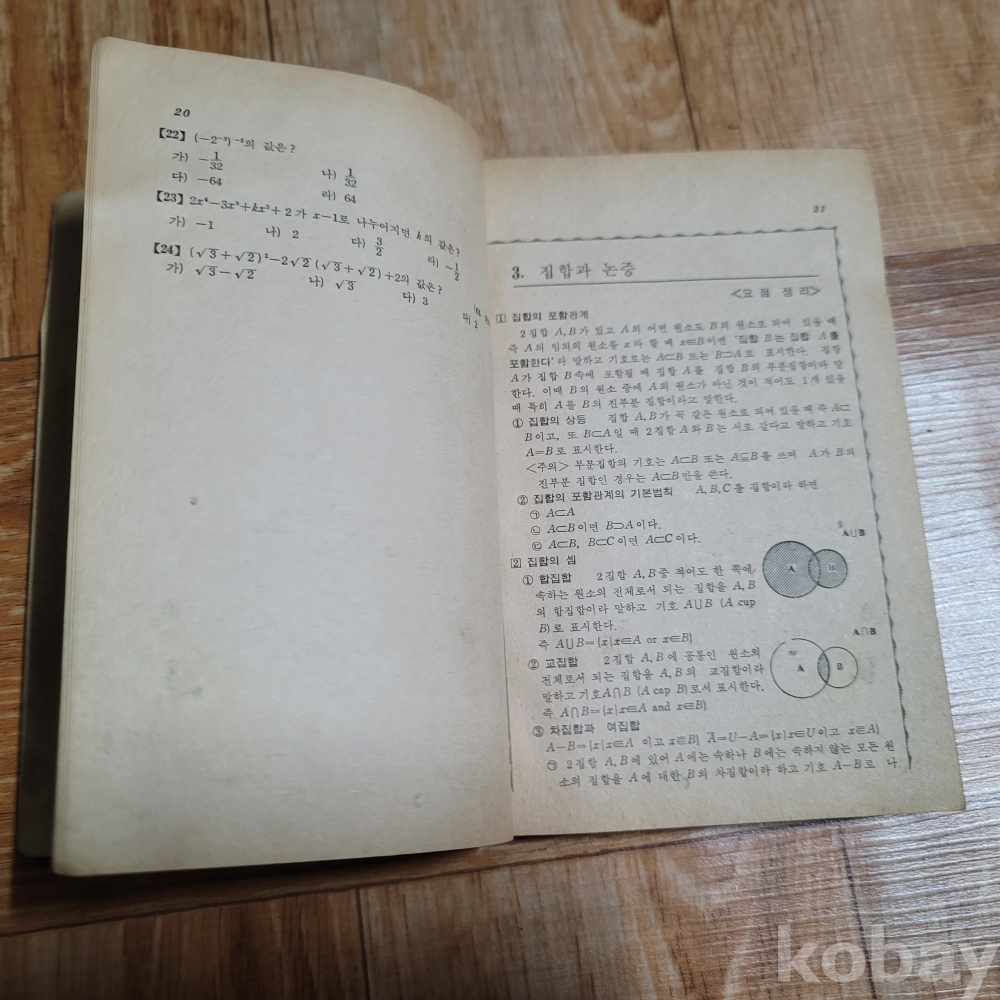 20
【22】 (−2⁻³)⁻²의 값은?
가) −1/32 나) 1/32
다) −64 라) 64
【23】 2x⁴−3x³+kx²+2가 x−1로 나누어지면 k의 값은?
가) −1 나) 2 다) 3/2 라) −1/2
【24】 (√3+√2)²−2√2(√3+√2)+2의 값은?
가) √3−√2 나) √3 다) 3
라) 2
21
3. 집합과 논증
<요점 정리>
1 집합의 포함관계
2집합 A, B가 있고 A의 어떤 원소도 B의 원소로 되어 있을 때
즉 A의 임의의 원소를 x라 할 때 x∈B이면 '집합 B는 집합 A를
포함한다'라 말하고 기호로는 A⊂B 또는 B⊃A로 표시한다. 집합
A가 집합 B속에 포함될 때 집합 A를 집합 B의 부분집합이라 말
한다. 이때 B의 원소 중에 A의 원소가 아닌 것이 적어도 1개 있을
때 특히 A를 B의 진부분 집합이라고 말한다.
① 집합의 상등 집합 A, B가 꼭 같은 원소로 되어 있을 때 즉 A⊂
B이고, 또 B⊂A일 때 2집합 A와 B는 서로 같다고 말하고 기호
A=B로 표시한다.
<주의> 부분집합의 기호는 A⊂B 또는 A⊆B를 쓰며 A가 B의
진부분 집합인 경우는 A⊂B만을 쓴다.
② 집합의 포함관계의 기본법칙 A, B, C를 집합이라 하면
㉠ A⊂A
㉡ A⊂B이면 B⊃A이다.
㉢ A⊂B, B⊂C이면 A⊂C이다.
2 집합의 셈
A∪B
A B
① 합집합 2집합 A, B중 적어도 한 쪽에
속하는 원소의 전체로서 되는 집합을 A, B
의 합집합이라 말하고 기호 A∪B (A cup
B)로 표시한다.
즉 A∪B={x|x∈A or x∈B}
A∩B
A B
② 교집합 2집합 A, B에 공통인 원소의
전체로서 되는 집합을 A, B의 교집합이라
말하고 기호 A∩B (A cap B)로서 표시한다.
즉 A∩B={x|x∈A and x∈B}
③ 차집합과 여집합
A−B={x|x∈A 이고 x∉B} Ā=U−A={x|x∈U이고 x∉A}
㉠ 2집합 A, B에 있어 A에는 속하나 B에는 속하지 않는 모든 원
소의 집합을 A에 대한 B의 차집합이라 하고 기호 A−B로 나
kobay